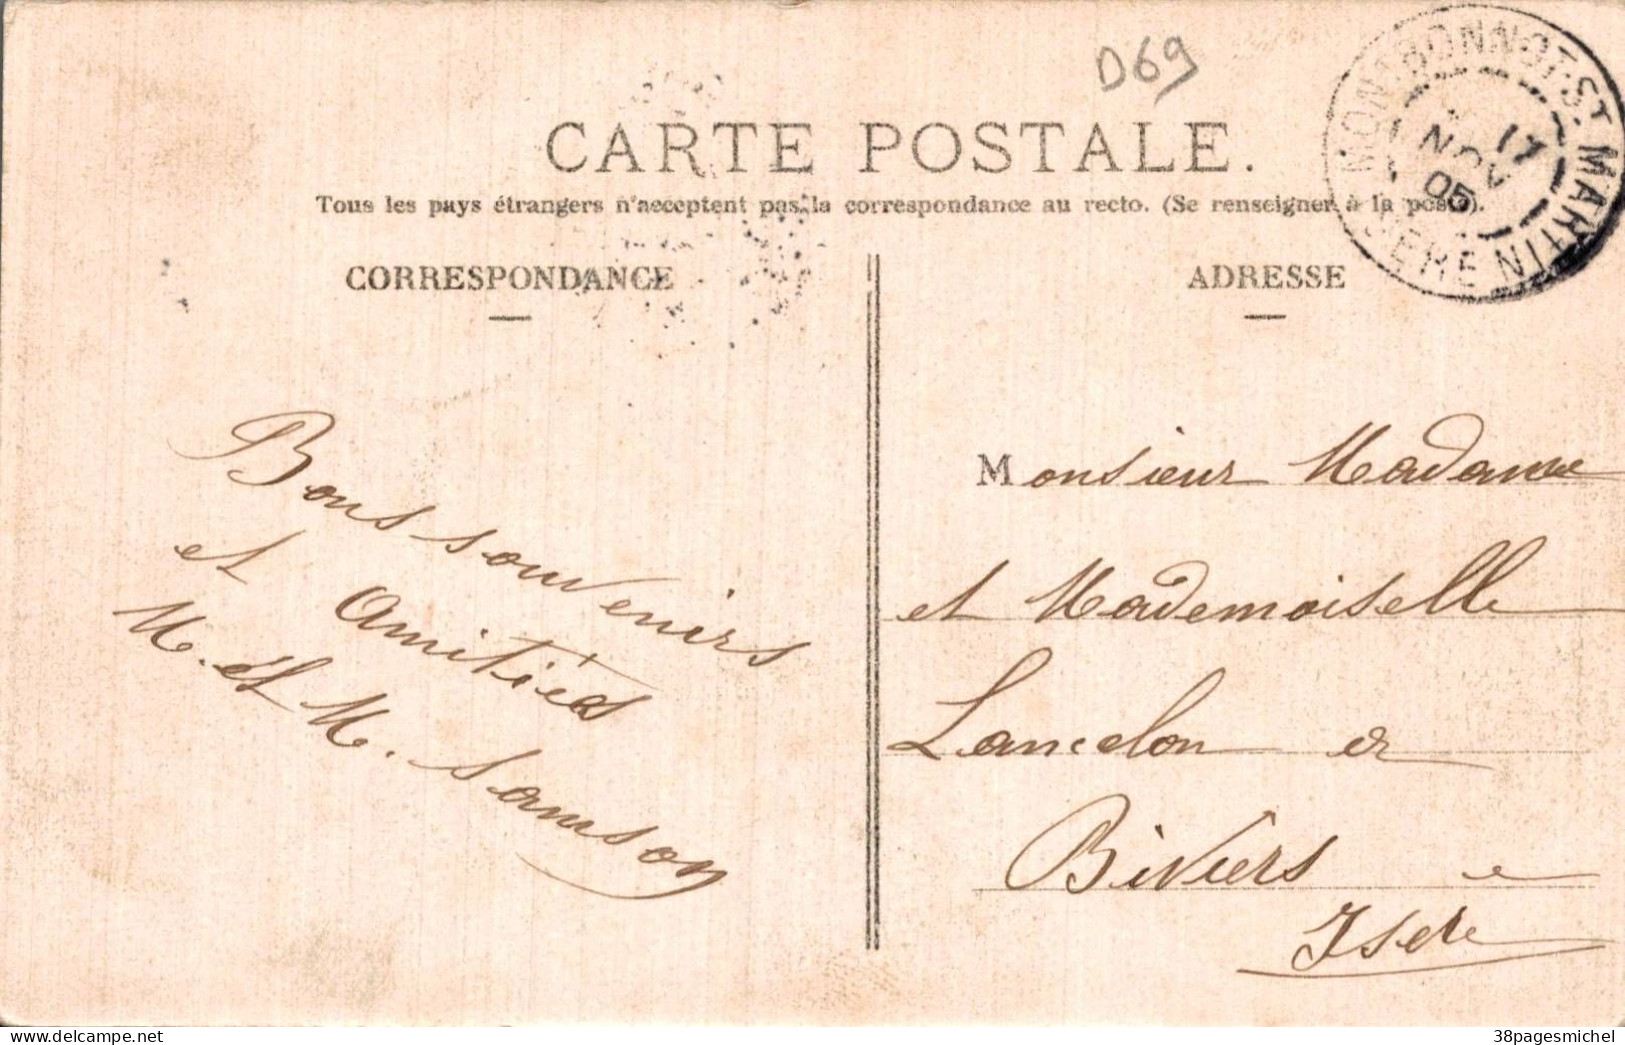 D69
CARTE POSTALE.
Tous les pays étrangers n'acceptent pas la correspondance au recto. (Se renseigner à la poste).
MONTBONNOT-ST MARTIN
ISERE
17
NOV
05
CORRESPONDANCE
ADRESSE
Bons souvenirs
et Amitiés
M. et M. Samson
Monsieur Madame
et Mademoiselle
Lancelon a
Biviers
Isère
delcampe.net
38pagesmichel